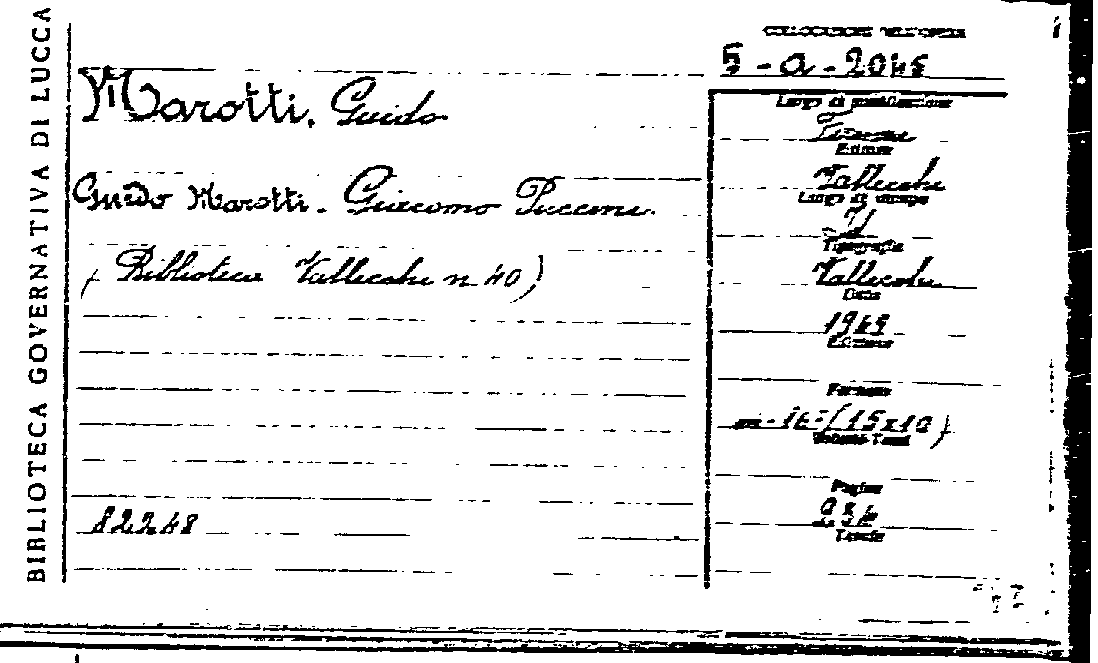 BIBLIOTECA GOVERNATIVA DI LUCCA
COLLOCAZIONE DELL'OPERA
5-a-2045
Marotti, Guido
Guido Marotti. Giacomo Puccini.
(Biblioteca Vallecchi n. 40)
82248
Luogo di pubblicazione
Firenze
Editore
Vallecchi
Luogo di stampa
Tipografia
Vallecchi
Data
1949
Edizione
Formato
in-16=(15x10)
Pagine
Tavole